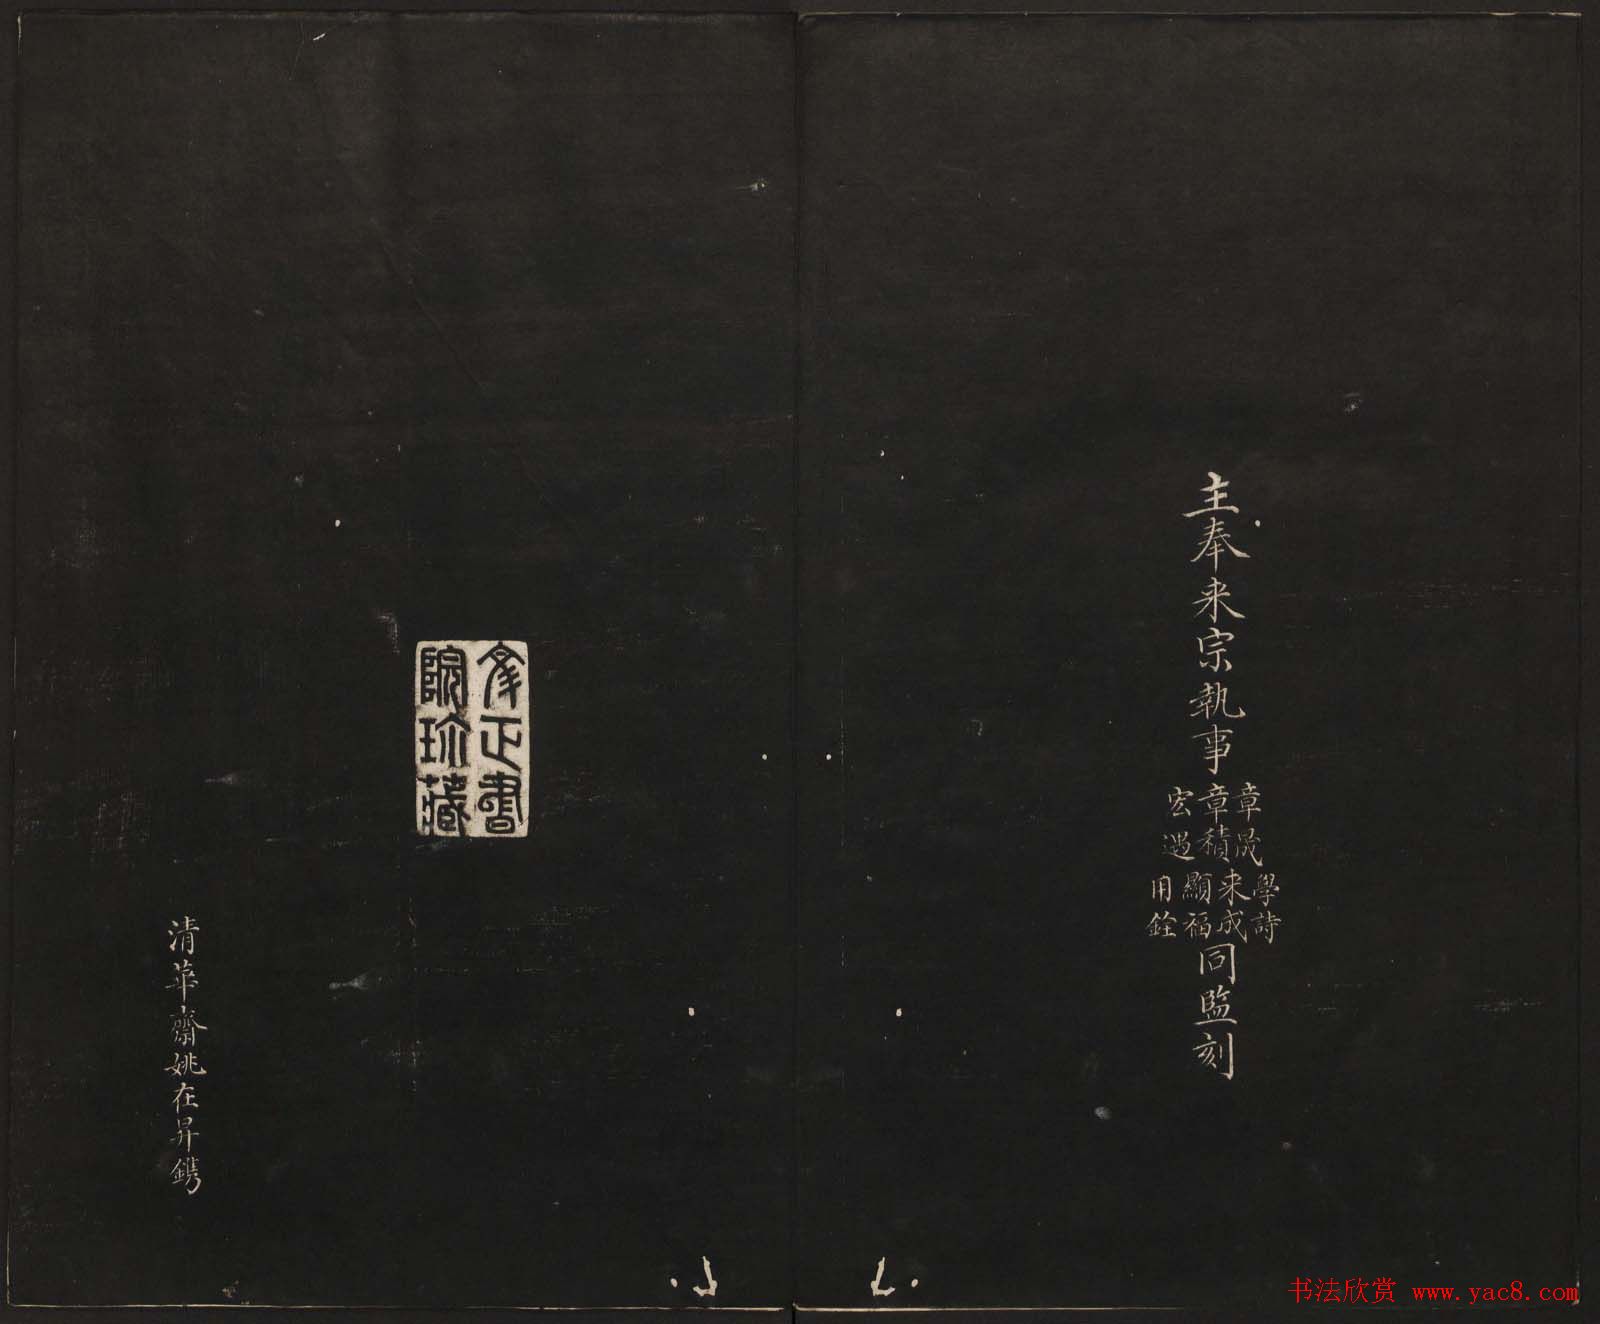 主奉来宗執事
章晟
章積
宏遇
學詩
来成
顯福
用銓
同監刻
文正書
院珍藏
清華齋姚在昇鐫
书法欣赏 www.yac8.com